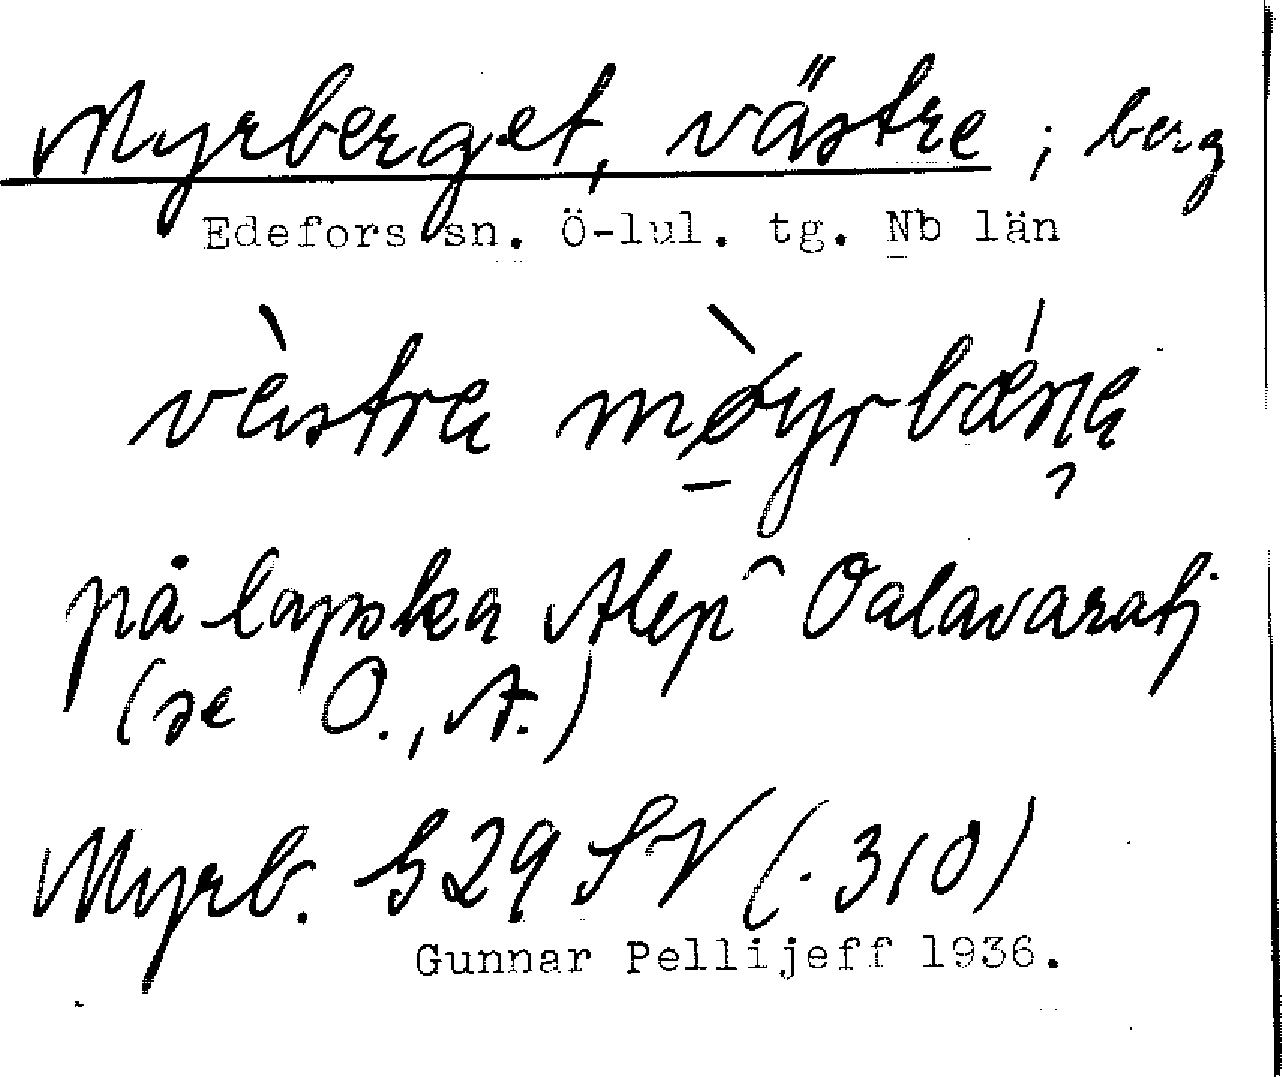 Myrberget, västre ; berg
Edefors sn. Ö-lul. tg. Nb län
på lapska Alep Oalavaratj
(se O., A.)
Myrb. 529 SV (.310)
Gunnar Pellijeff 1936.